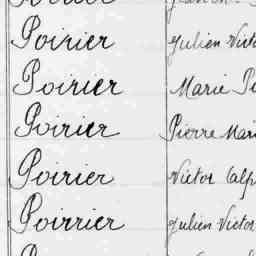 Poirier Julien Victo
Poirier Marie
Poirier Pierre Mari
Poirier Victor
Poirier Julien Victor